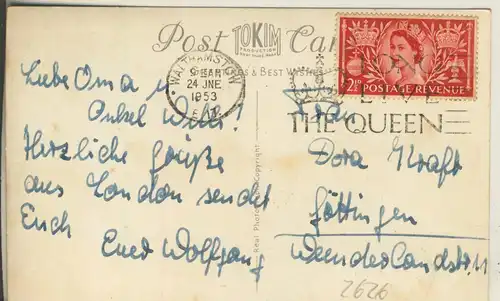 Post Card
TOKIM
PRODUCTION
& BEST WISHES
WALTHAMSTOW
9-15 AM
24 JNE
1953
E.17
2½D POSTAGE REVENUE
LONG LIVE
THE QUEEN
Liebe Oma u.
Onkel Willi!
Herzliche Grüße
aus London sendet
Euch Euer Wolfgang
Real Photo
Copyright
Frau
Dora Kraft
Göttingen
Weenderlandstr. 11
2626